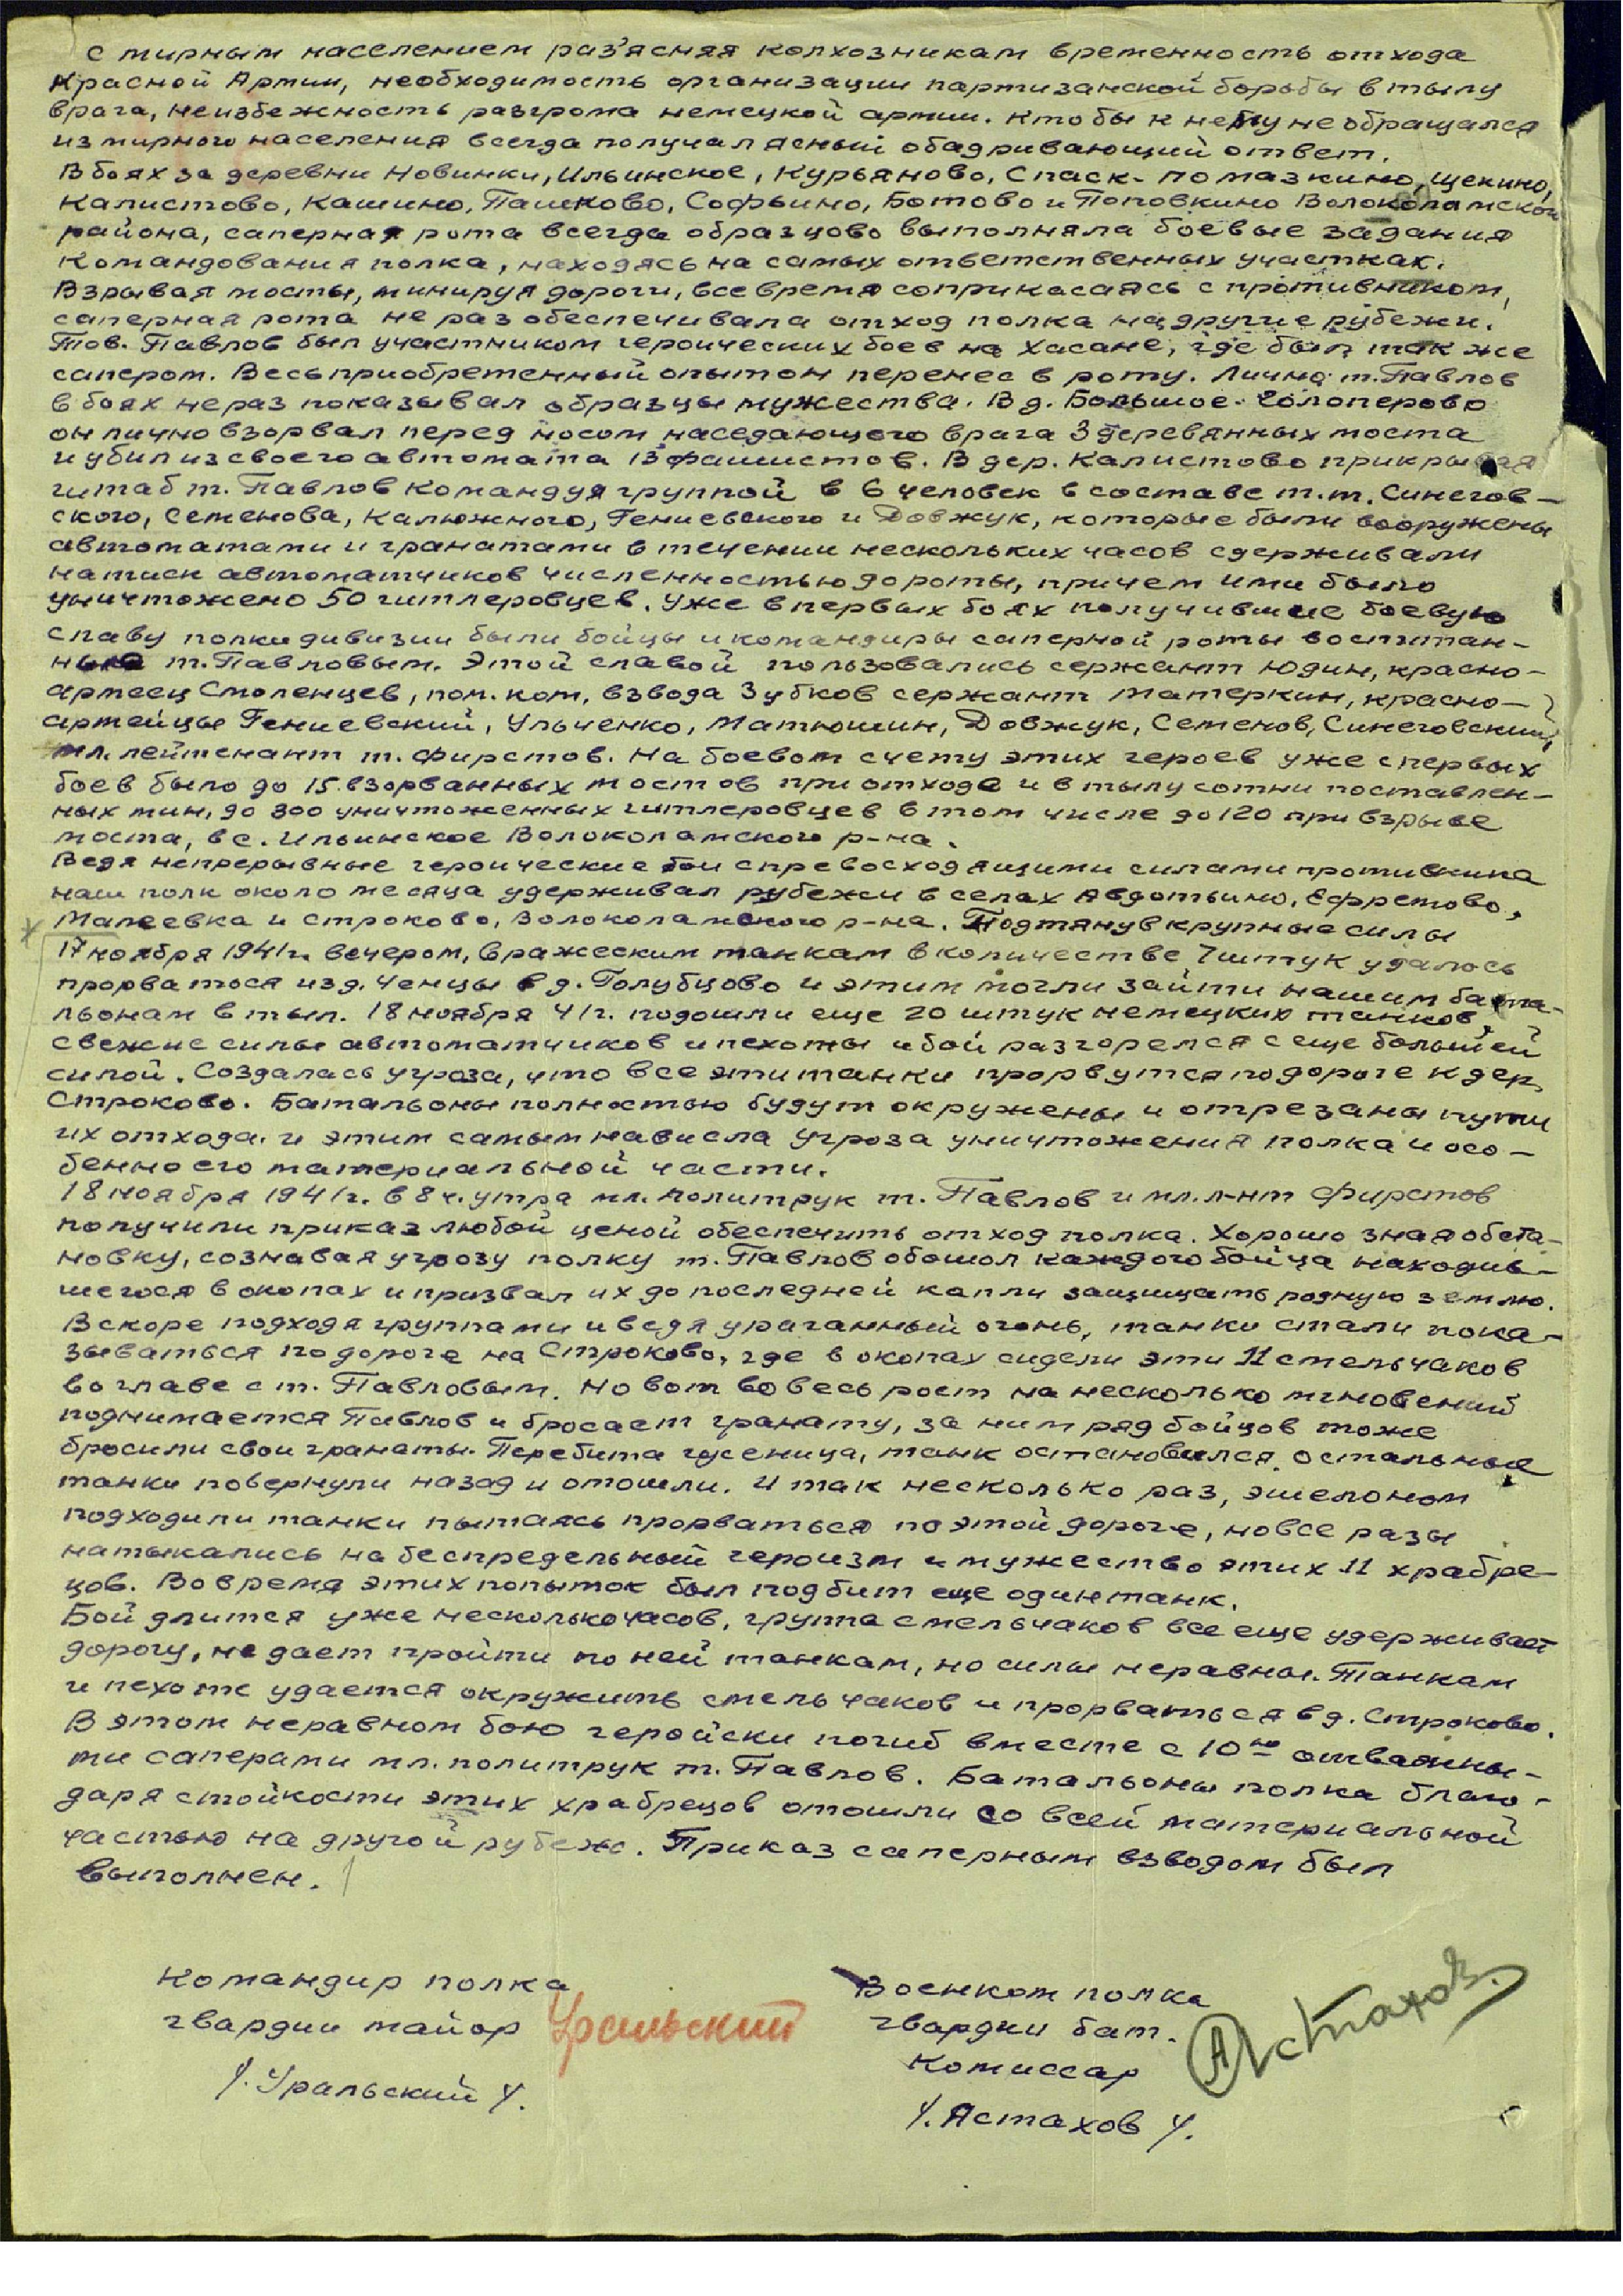 с мирным населением раз'ясняя колхозникам временность отхода
Красной Армии, необходимость организации партизанской борьбы в тылу
врага, неизбежность разгрома немецкой армии. Кто бы к нему не обращался
из мирного населения всегда получал ясный обадривающий ответ.
В боях за деревни Новинки, Ильинское, Курьяново, Спасс-Помазкино, Щекино,
Калистово, Кашино, Пашково, Софьино, Ботово и Поповкино Волоколамского
района, саперная рота всегда образцово выполняла боевые задания
командования полка, находясь на самых ответственных участках.
Взрывая мосты, минируя дороги, все время соприкасаясь с противником,
саперная рота не раз обеспечивала отход полка на другие рубежи.
Тов. Павлов был участником героических боев на Хасане, где был так же
сапером. Весь приобретенный опыт он перенес в роту. Лично т. Павлов
в боях не раз показывал образцы мужества. В д. Большое-Голоперово
он лично взорвал перед носом наседающего врага 3 деревянных моста
и убил из своего автомата 13 фашистов. В дер. Калистово прикрывая
штаб т. Павлов командуя группой в 6 человек в составе т.т. Синегов-
ского, Семенова, Калюжного, Гениевского и Довжук, которые были вооружены
автоматами и гранатами в течении нескольких часов сдерживали
натиск автоматчиков численностью до роты, причем ими было
уничтожено 50 гитлеровцев. Уже в первых боях получившие боевую
славу полка дивизии были бойцы и командиры саперной роты воспитан-
ные т. Павловым. Этой славой пользовались сержант Юдин, красно-
армеец Смоленцев, пом. ком. взвода Зубков сержант Матеркин, красно-
армейцы Гениевский, Ульченко, Матюшин, Довжук, Семенов, Синеговский,
мл. лейтенант т. Фирстов. На боевом счету этих героев уже с первых
боев было до 15 взорванных мостов при отходе и в тылу сотни поставлен-
ных мин, до 300 уничтоженных гитлеровцев в том числе до 120 при взрыве
моста, в с. Ильинское Волоколамского р-на.
Ведя непрерывные героические бои с превосходящими силами противника
наш полк около месяца удерживал рубежи в селах Авдотьино, Ефремово,
Малеевка и Строково, Волоколамского р-на. Подтянув крупные силы
17 ноября 1941г. вечером, вражеским танкам в количестве 7 штук удалось
прорваться из д. Ченцы в д. Голубцово и этим могли зайти нашим бата-
льонам в тыл. 18 ноября 41г. подошли еще 20 штук немецких танков,
свежие силы автоматчиков и пехоты и бой разгорелся с еще большей
силой. Создалась угроза, что все эти танки прорвутся по дороге к дер.
Строково. Батальоны полностью будут окружены и отрезаны пути
их отхода. и этим самым нависла угроза уничтожения полка и осо-
бенно его материальной части.
18 ноября 1941г. в 8 ч. утра мл. политрук т. Павлов и мл. л-нт Фирстов
получили приказ любой ценой обеспечить отход полка. Хорошо зная обста-
новку, сознавая угрозу полку т. Павлов обошол каждого бойца находив-
шегося в окопах и призвал их до последней капли защищать родную землю.
Вскоре подходя группами и ведя ураганный огонь, танки стали пока-
зываться по дороге на Строково, где в окопах сидели эти 11 смельчаков
во главе с т. Павловым. Но вот во весь рост на несколько мгновений
поднимается Павлов и бросает гранату, за ним ряд бойцов тоже
бросили свои гранаты. Перебита гусеница, танк остановился. остальные
танки повернули назад и отошли. И так несколько раз, эшелоном
подходили танки пытаясь прорваться по этой дороге, но все разы
натыкались на беспредельный героизм и мужество этих 11 храбре-
цов. Во время этих попыток был подбит еще один танк.
Бой длится уже несколько часов, группа смельчаков все еще удерживает
дорогу, не дает пройти по ней танкам, но силы неравны. Танкам
и пехоте удается окружить смельчаков и прорваться в д. Строково.
В этом неравном бою геройски погиб вместе с 10ю отважны-
ми саперами мл. политрук т. Павлов. Батальоны полка благо-
даря стойкости этих храбрецов отошли со всей материальной
частью на другой рубеж. Приказ саперным взводом был
выполнен.
Командир полка
гвардии майор Уральский
/. Уральский /.
Военком полка
гвардии бат.
комиссар Астахов.
/. Астахов /.